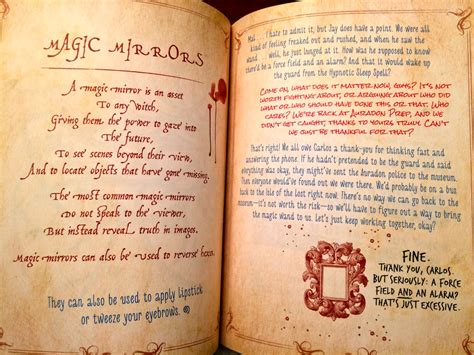 Magic Mirrors
A magic mirror is an asset
To any witch,
Giving them the power to gaze into
The future,
To see scenes beyond their view,
And to locate objects that have gone missing.
The most common magic mirrors
Do not speak to the viewer,
But instead reveal truth in images.
Magic mirrors can also be used to reverse hexes.
They can also be used to apply lipstick
or tweeze your eyebrows.
Mal . . . I hate to admit it, but Jay does have a point. We were all
kind of feeling freaked out and rushed, and when he saw the
wand . . . well, he just lunged at it. How was he supposed to know
there'd be a force field and an alarm? And that it would wake up
the guard from the Hypnotic Sleep Spell?
Come on, what does it matter now, guys? It's not
worth fighting about, or arguing about who did
what or who should have done this or that. Who
cares? We're back at Auradon Prep, and we
didn't get caught, thanks to yours truly. Can't
we just be thankful for that?
That's right! We all owe Carlos a thank-you for thinking fast and
answering the phone. If he hadn't pretended to be the guard and said
everything was okay, they might've sent the Auradon police to the museum.
Then everyone would've found out we were there. We'd probably be on a bus
back to the Isle of the Lost right now. There's no way we can go back to the
museum—it's not worth the risk—so we'll have to figure out a way to bring
the magic wand to us. Let's just keep working together, okay?
Fine.
Thank you, Carlos.
But seriously: a force
field and an alarm?
That's just excessive.